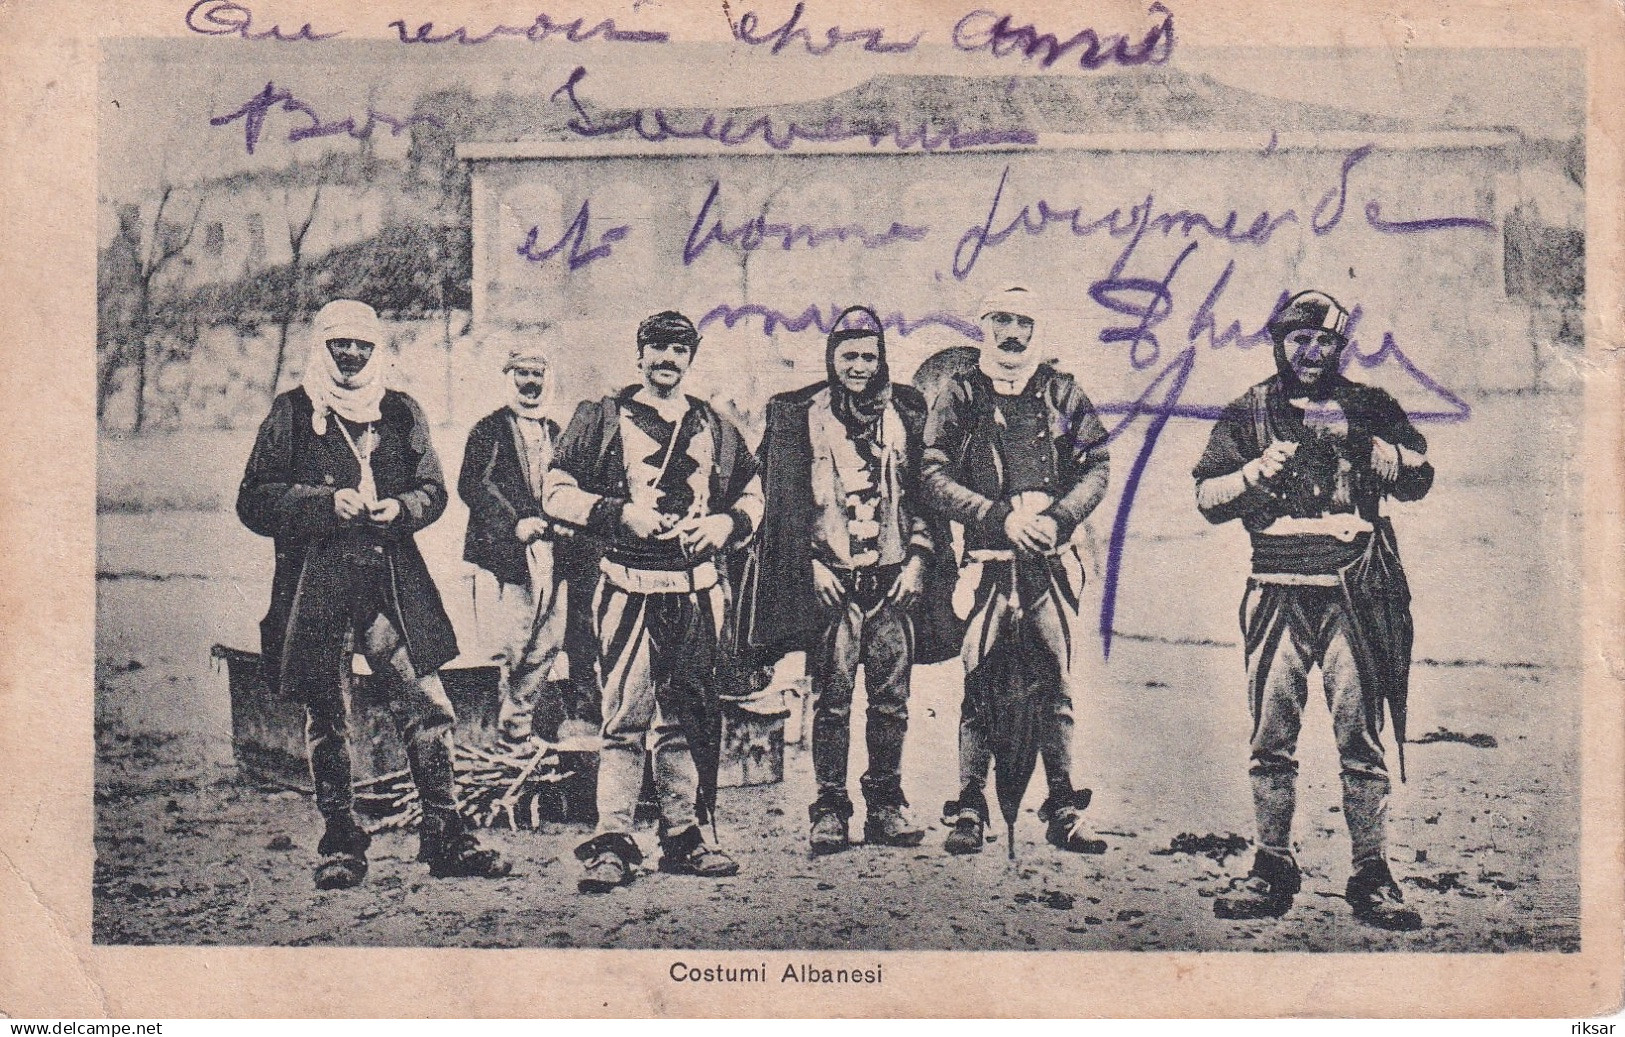 Au revoir cher Amis
Bon Souvenir
et bonne poignée de
main
Costumi Albanesi
www.delcampe.net
riksar